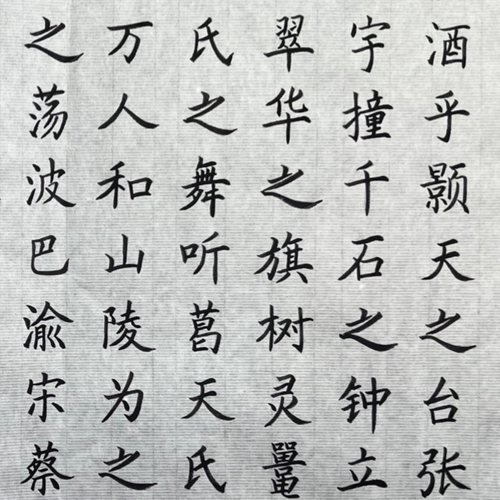 酒乎颢天之台张
宇撞千石之钟立
翠华之旗树灵鼍
氏之舞听葛天氏
万人和山陵为之
之荡波巴渝宋蔡